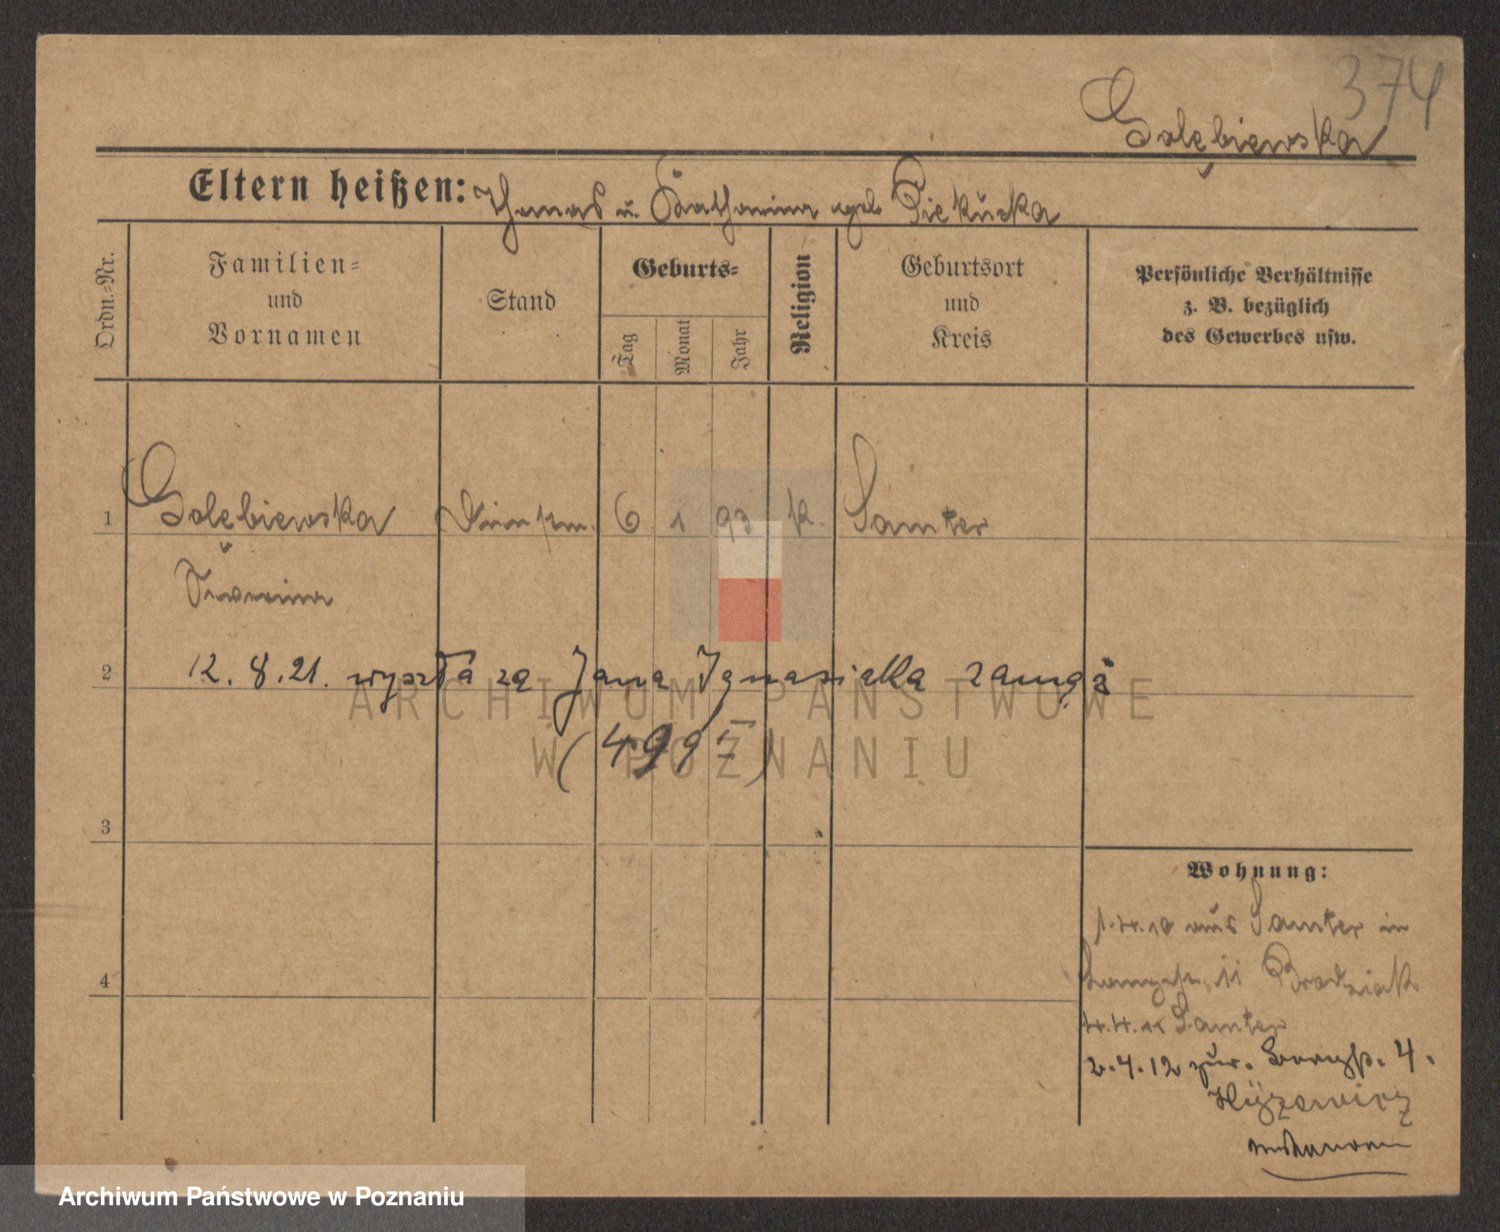 374
Golębiewska
Eltern heißen: Thomas u. Katharina geb. Piekucka
Ordn.-Nr.
Familien-
und
Vornamen
Stand
Geburts-
Tag
Monat
Jahr
Religion
Geburtsort
und
Kreis
Persönliche Verhältnisse
z. B. bezüglich
des Gewerbes usw.
1 Golębiewska 6 1 93 k. Samter
2 12.8.21. wyszła za Jana Ignasiaka zamąż
(499 I)
ARCHIWUM PAŃSTWOWE
W POZNANIU
3
Wohnung:
1.4.10 aus Samter in
11 Brodziak
4
Samter
2.4.12 zur. 4.
Archiwum Państwowe w Poznaniu